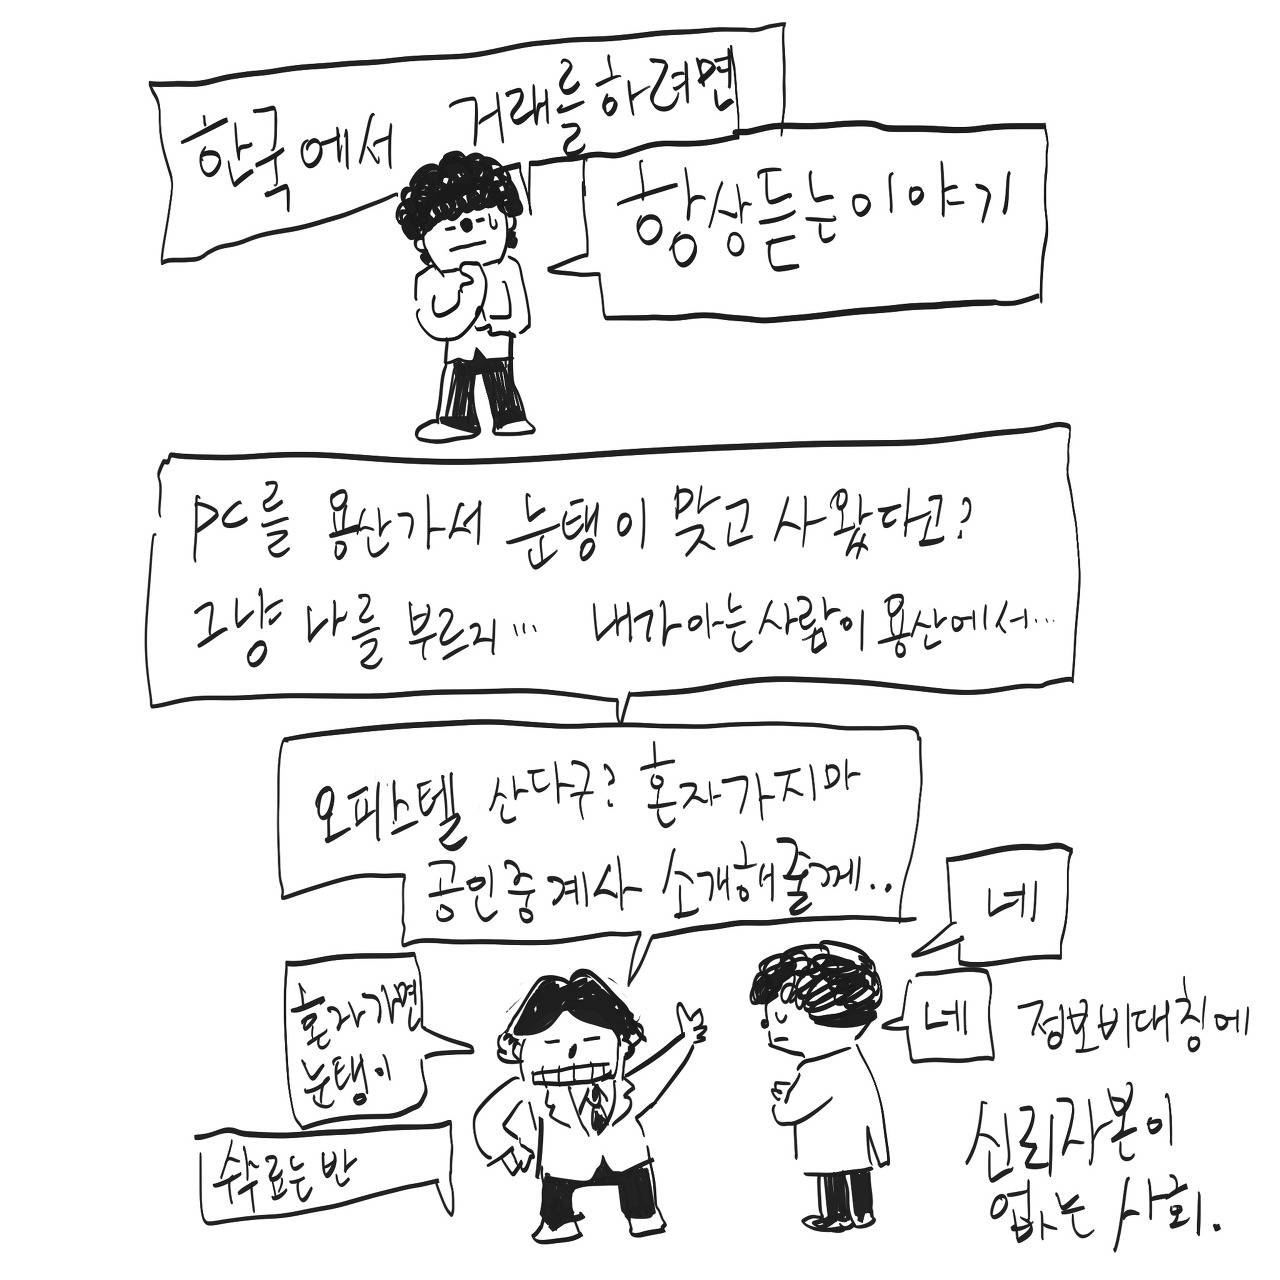 한국에서 거래를하려면
항상듣는이야기
PC를 용산가서 눈탱이 맞고 사왔다고?
그냥 나를 부르지... 내가아는사람이 용산에서...
오피스텔 산다구? 혼자가지마
공인중계사 소개해줄께..
네
혼자가면
눈탱이
네
정보비대칭에
수수료는 반
신뢰자본이
없는 사회.